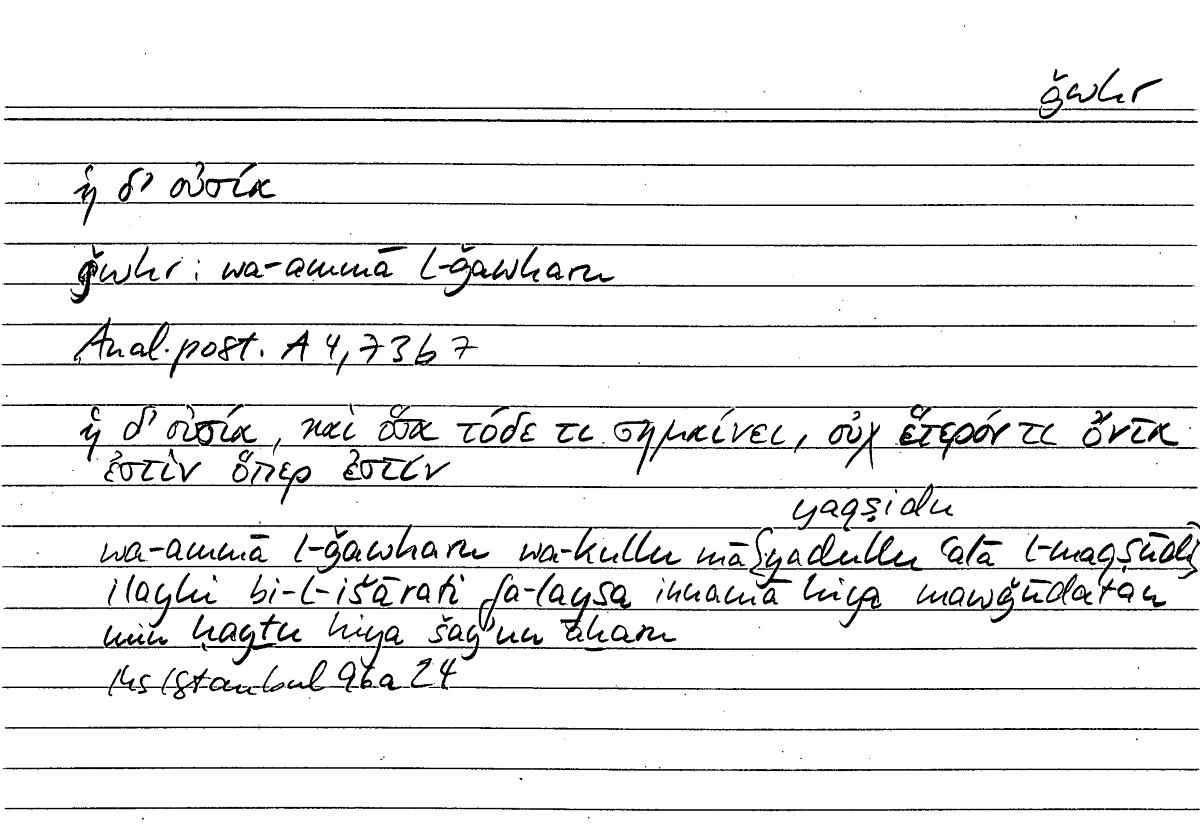 ǧwhr
ἡ δ' οὐσία
ǧwhr: wa-ammā l-ǧawharu
Anal. post. A 4, 73b7
ἡ δ' οὐσία, καὶ ὅσα τόδε τι σημαίνει, οὐχ ἕτερόν τι ὄντα
ἐστὶν ὅπερ ἐστίν
yaqṣidu
wa-ammā l-ǧawharu wa-kullu mā {yadullu ʿalā l-maqṣūdi}
ilayhi bi-l-išārati fa-laysa innamā hiya mawǧūdatan
min ḥayṯu hiya šayʾun āḫaru
Hs Istanbul 96a 24